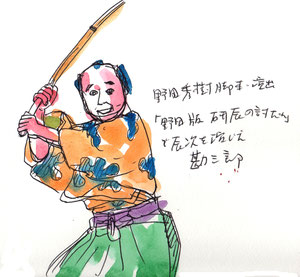 野田秀樹脚本・演出
「野田版 研辰の討たれ」
で辰次を演じた
勘三郎